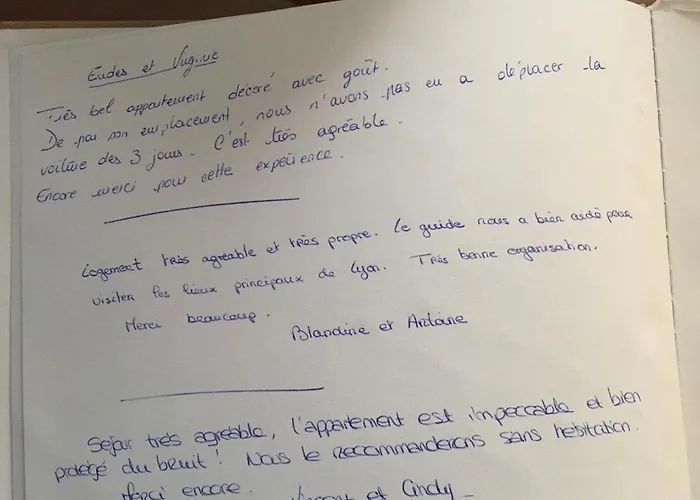 Eudes et
Très bel appartement décoré avec goût.
De par son emplacement, nous n'avons pas eu a déplacer la
voiture des 3 jours. C'est très agréable.
Encore merci pour cette expérience.
Logement très agréable et très propre. Le guide nous a bien aidé pour
visiter les lieux principaux de Lyon. Très bonne organisation.
Merci beaucoup.
Blandine et Antoine
Sejour très agréable, l'appartement est impeccable et bien
protégé du bruit! Nous le recommanderons sans hésitation.
Merci encore. et Cindy_